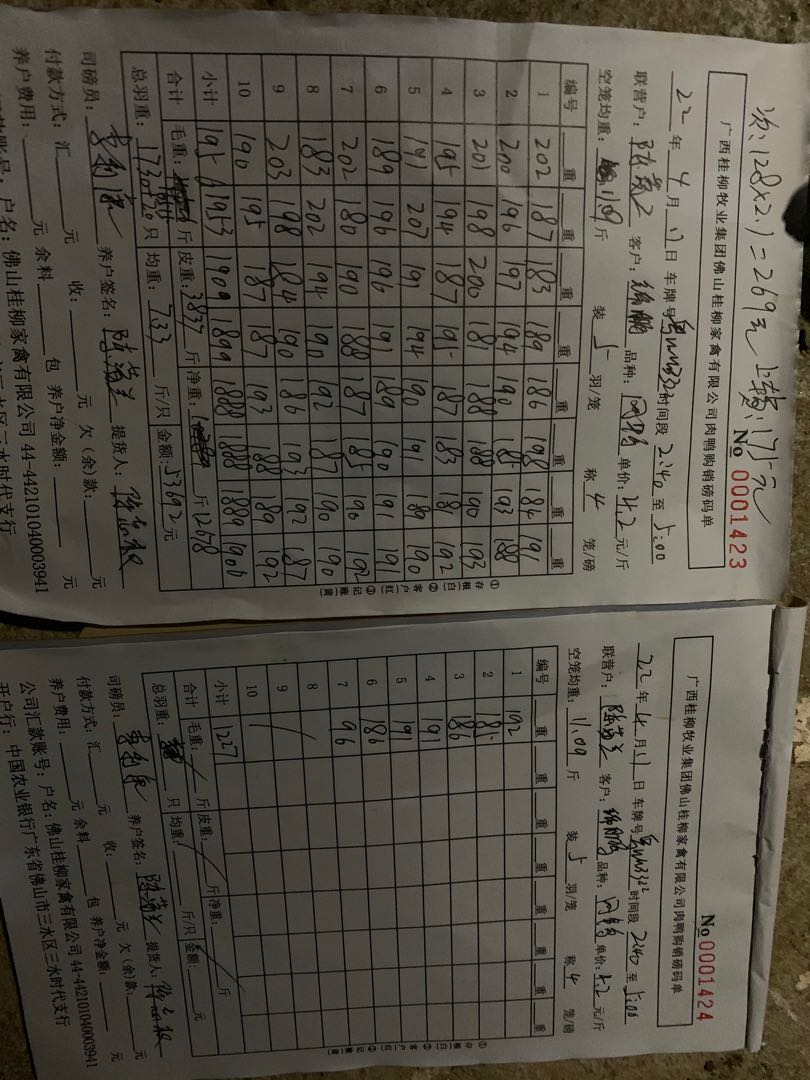 凭:128×2.1=269元 上车费:175元
广西桂柳牧业集团佛山桂柳家禽有限公司肉鸭购销磅码单
No 0001423
22年4月17日 车牌号 时间段2:40至5:00
联营户: 客户: 品种: 单价:4.2元/斤
空笼均重:11.09斤 装5羽/笼 称4笼/磅
编号 重 重 重 重 重 重 重 重
1 202 187 183 189 186 198 184 191
2 200 196 197 194 190 185 193 188
3 201 198 200 181 188 188 190 193
4 195 194 187 195 187 183 181 192
5 191 207 191 194 190 191 189 190
6 189 196 196 191 189 190 191 191
7 202 180 190 188 187 185 190 192
8 183 202 194 190 192 187 190 190
9 203 198 184 190 186 193 192 187
10 190 195 187 187 193 188 189 192
小计 1956 1953 1909 1899 1888 1888 1889 1906
合计 毛重: 斤 皮重: 斤 净重: 斤
总羽重: 1730 只 均重:7.33 斤/只 金额:53692元
①存根(白)②客户(红)③记账(黄)
司磅员: 养户签名: 提货人:
付款方式:汇 元 收: 元 欠(余)款: 元
养户费用: 元 余料 包 养户净金额: 元
户名:佛山桂柳家禽有限公司 44-442101040003941
三水区三水时代支行
广西桂柳牧业集团佛山桂柳家禽有限公司肉鸭购销磅码单
No 0001424
22年4月17日 车牌号 时间段2:40至5:00
联营户: 客户: 品种: 单价:4.2元/斤
空笼均重:11.09斤 装5羽/笼 称4笼/磅
编号 重 重 重 重 重 重 重 重
1 192
2 185
3 186
4 191
5 191
6 186
7 96
8
9
10
小计 1227
合计 毛重: 斤 皮重: 斤 净重: 斤
总羽重: 只 均重: 斤/只 金额: 元
①存根(白)②客户(红)③记账(黄)
司磅员: 养户签名: 提货人:
付款方式:汇 元 收: 元 欠(余)款: 元
养户费用: 元 余料 包 养户净金额: 元
公司汇款账号:户名:佛山桂柳家禽有限公司 44-442101040003941
开户行:中国农业银行广东省佛山市三水区三水时代支行